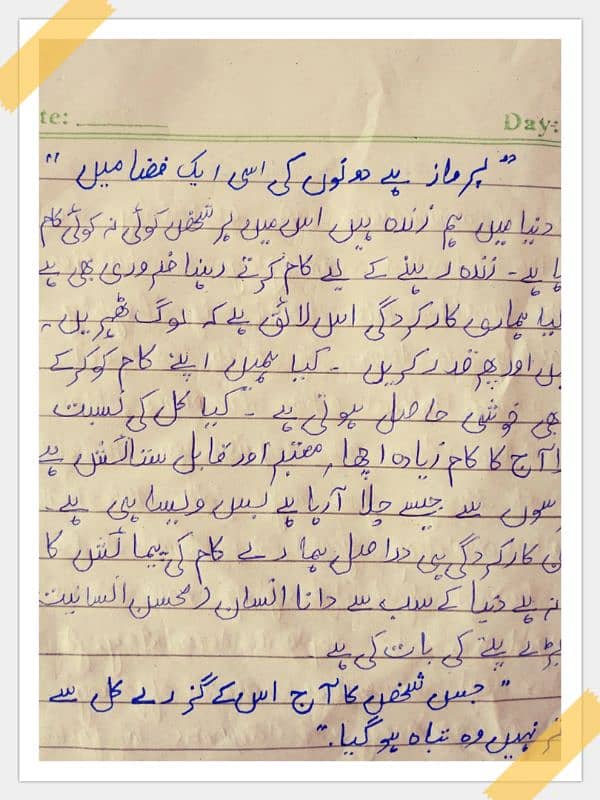 te: Day:
"پرواز ہے دونوں کی اسی ایک فضا میں"
دنیا میں ہم زندہ ہیں اس میں ہر شخص کوئی نہ کوئی کام
ہا ہے۔ زندہ رہنے کے لیے کام کرتے رہنا ضروری بھی ہے
کیا ہماری کارکردگی اس لائق ہے کہ لوگ ٹھہریں۔
اور پھر قدر کریں ۔ کیا ہمیں اپنے کام کو کرکے
بھی خوشی حاصل ہوتی ہے ۔ کیا کل کی نسبت
آج کا کام زیادہ اچھا، معتبر اور قابل ستائش ہے
سوں سے جیسے چلا آرہا ہے بس ویسا ہی ہے۔
کارکردگی ہی دراصل ہمارے کام کی پیمائش کا
نہ ہے دنیا کے سب سے دانا انسان (محسن انسانیت
بڑے پتے کی بات کی ہے
"جس شخص کا آج اس کے گزرے کل سے
نہیں وہ تباہ ہو گیا."